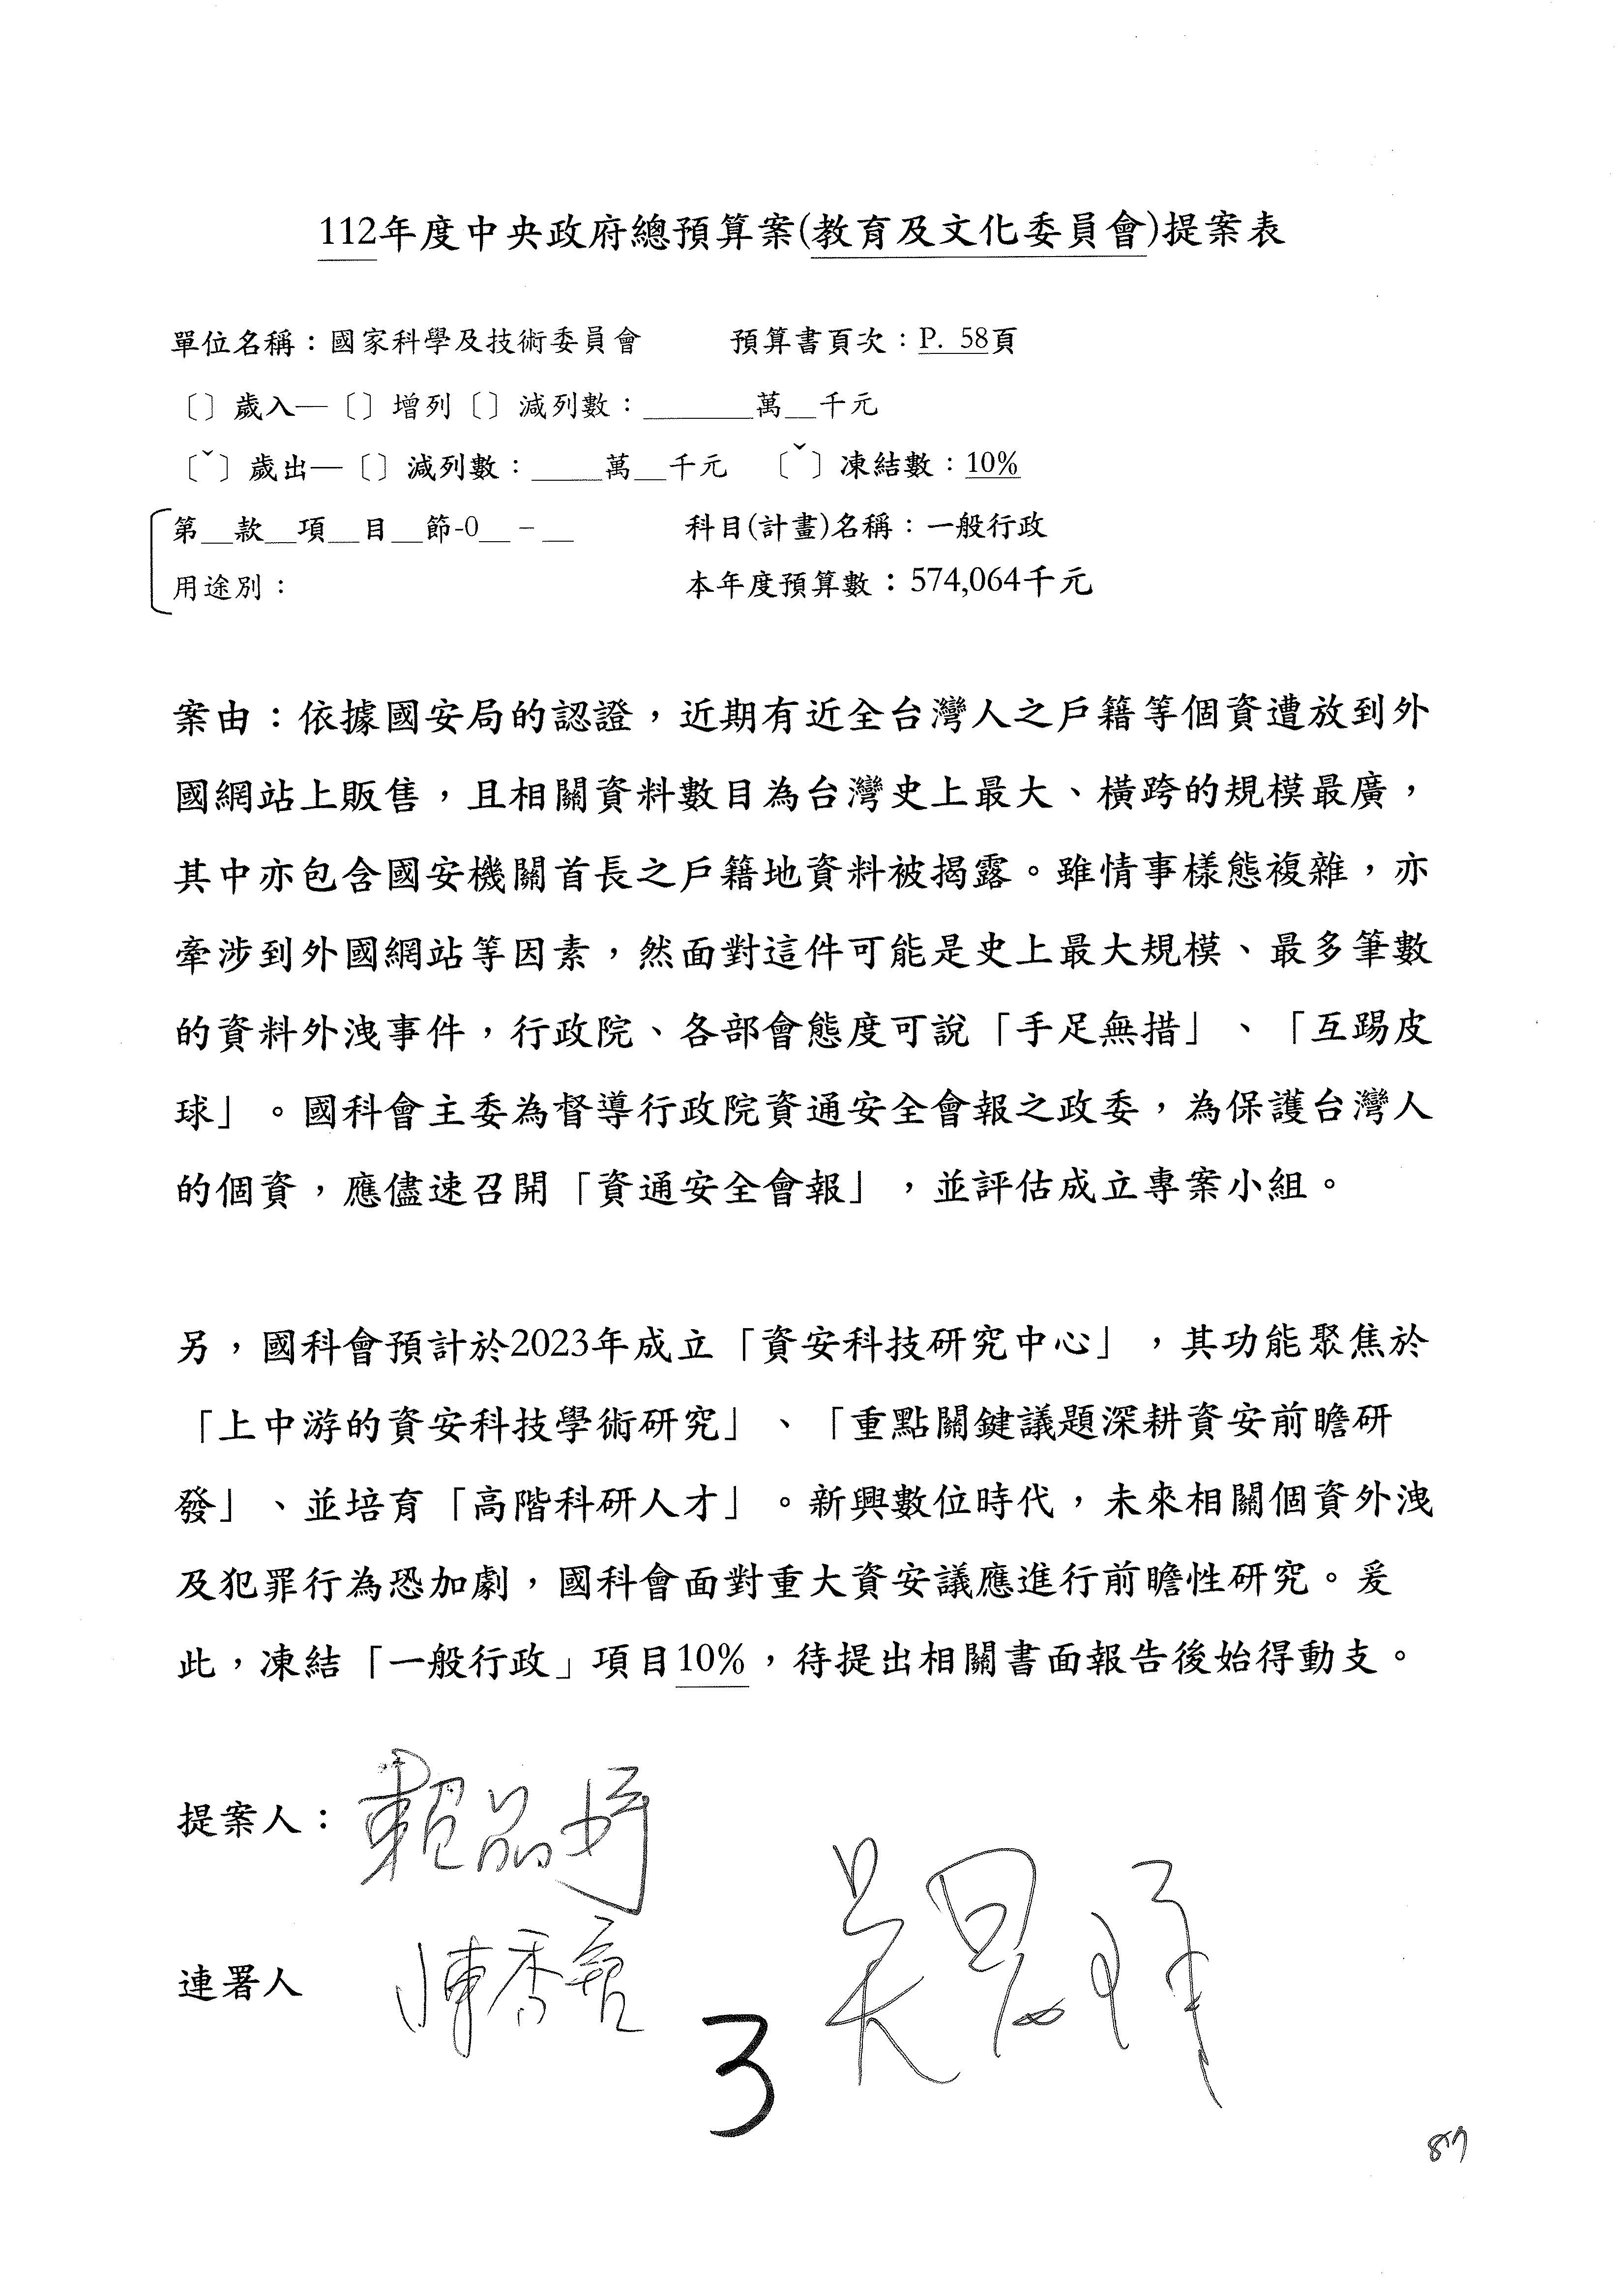 112年度中央政府總預算案(教育及文化委員會)提案表
單位名稱：國家科學及技術委員會　預算書頁次：P. 58頁
〔〕歲入—〔〕增列〔〕減列數：_______萬__千元
〔ˇ〕歲出—〔〕減列數：____萬__千元　〔ˇ〕凍結數：10%
第__款__項__目__節-0__－__　科目(計畫)名稱：一般行政
用途別：　本年度預算數：574,064千元
案由：依據國安局的認證，近期有近全台灣人之戶籍等個資遭放到外
國網站上販售，且相關資料數目為台灣史上最大、橫跨的規模最廣，
其中亦包含國安機關首長之戶籍地資料被揭露。雖情事樣態複雜，亦
牽涉到外國網站等因素，然面對這件可能是史上最大規模、最多筆數
的資料外洩事件，行政院、各部會態度可說「手足無措」、「互踢皮
球」。國科會主委為督導行政院資通安全會報之政委，為保護台灣人
的個資，應儘速召開「資通安全會報」，並評估成立專案小組。
另，國科會預計於2023年成立「資安科技研究中心」，其功能聚焦於
「上中游的資安科技學術研究」、「重點關鍵議題深耕資安前瞻研
發」、並培育「高階科研人才」。新興數位時代，未來相關個資外洩
及犯罪行為恐加劇，國科會面對重大資安議應進行前瞻性研究。爰
此，凍結「一般行政」項目10%，待提出相關書面報告後始得動支。
提案人：賴品妤
連署人
3
87